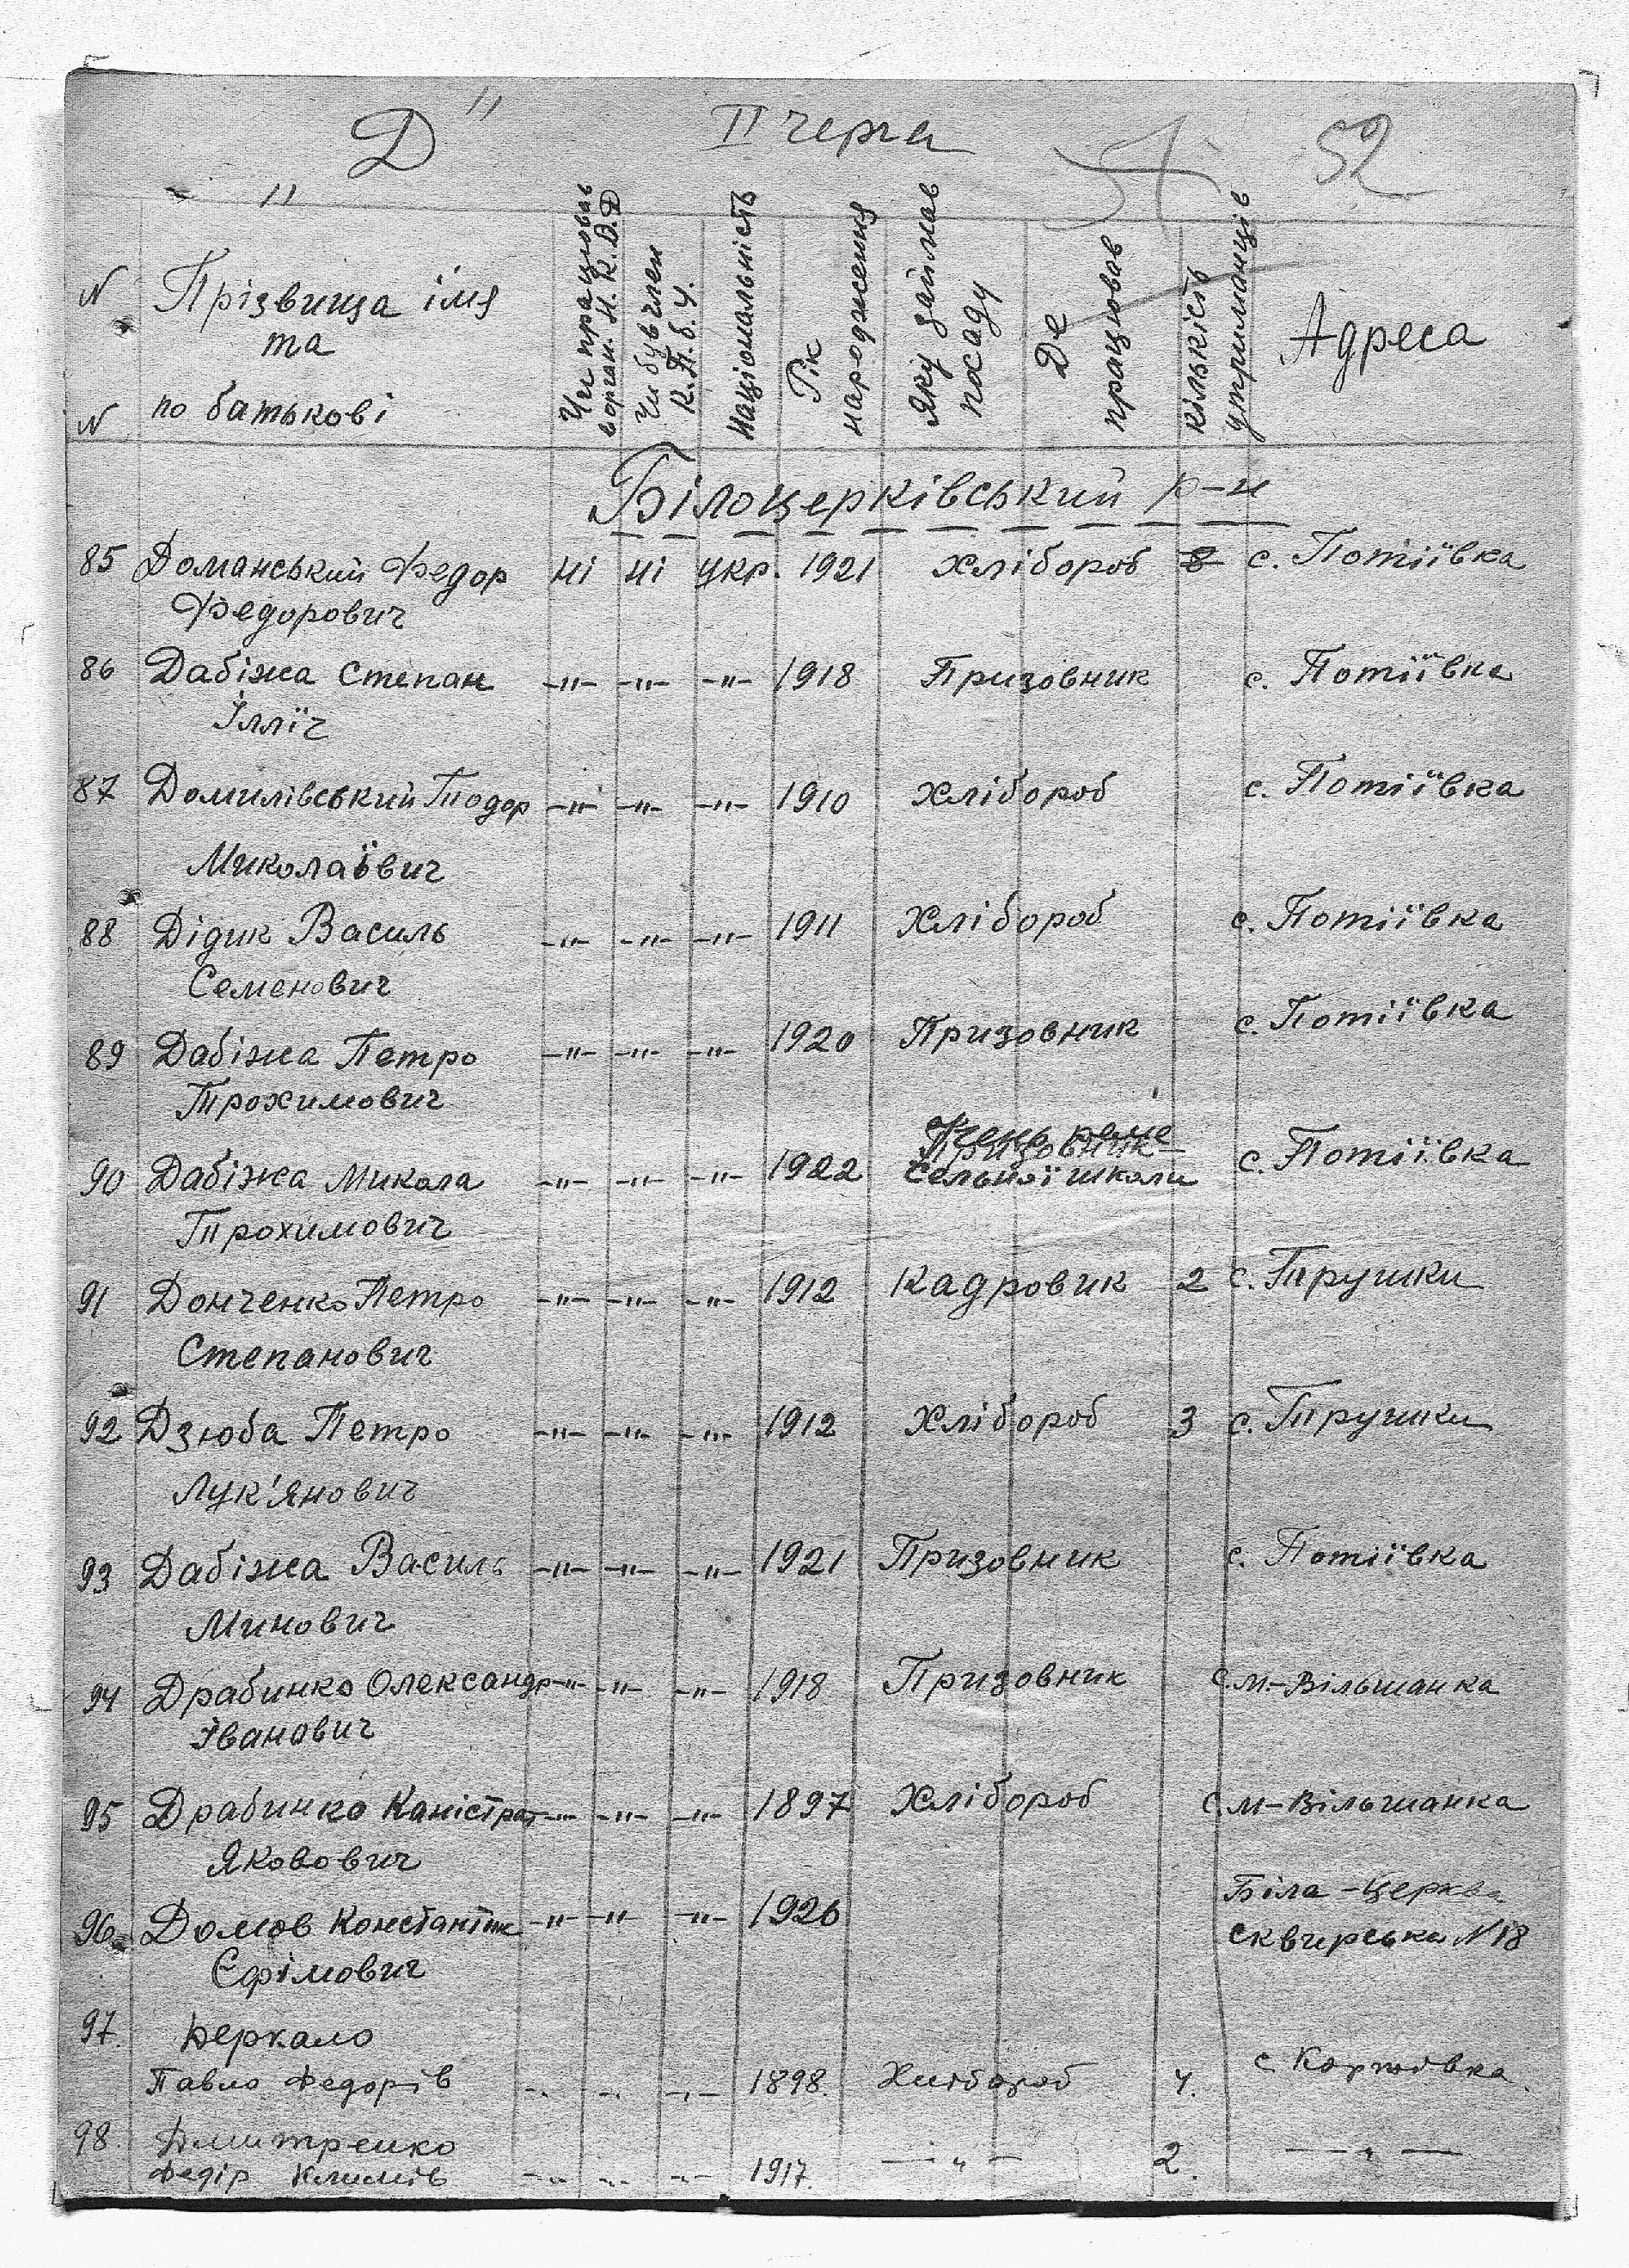 „Д" II черга 52
N N Прізвища імя та по батькові Чи працював в орган. Н.К.В.Д Чи був член К.П.б.У. Національність Рік народження Яку займав посаду Де працював кількість утриманців Адреса
Білоцерківський р-н
85 Доманський Федор ні ні укр. 1921 Хлібороб 8 с. Потіївка
Федорович
86 Дабіжа Степан -"- -"- -"- 1918 Призовник с. Потіївка
Ілліч
87 Домилівський Тодор -"- -"- -"- 1910 Хлібороб с. Потіївка
Миколаївич
88 Дідик Василь -"- -"- -"- 1911 Хлібороб с. Потіївка
Семенович
89 Дабіжа Петро -"- -"- -"- 1920 Призовник с. Потіївка
Трохимович
90 Дабіжа Микола -"- -"- -"- 1922 Призовник сельної школи с. Потіївка
Трохимович
91 Донченко Петро -"- -"- -"- 1912 Кадровик 2 с. Трушки
Степанович
92 Дзюба Петро -"- -"- -"- 1912 Хлібороб 3 с. Трушки
Лук'янович
93 Дабіжа Василь -"- -"- -"- 1921 Призовник с. Потіївка
Минович
94 Драбинко Олександр -"- -"- -"- 1918 Призовник с. М-Вільшанка
Іванович
95 Драбинко Каністрат -"- -"- -"- 1897 Хлібороб с. М-Вільшанка
Яковович
96 Домов Константин -"- -"- -"- 1926 Біла-Церква
Єфімович Сквирська N 18
97. Деркало
Павло Федорів -"- -"- -"- 1898. Хлібороб 4. с.
98. Дмитренко
Федір Климів -"- -"- -"- 1917. -"- 2. -"-